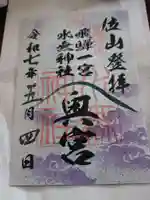 位山登拝
飛騨一宮
水無神社
奥宮
令和七年五月四日